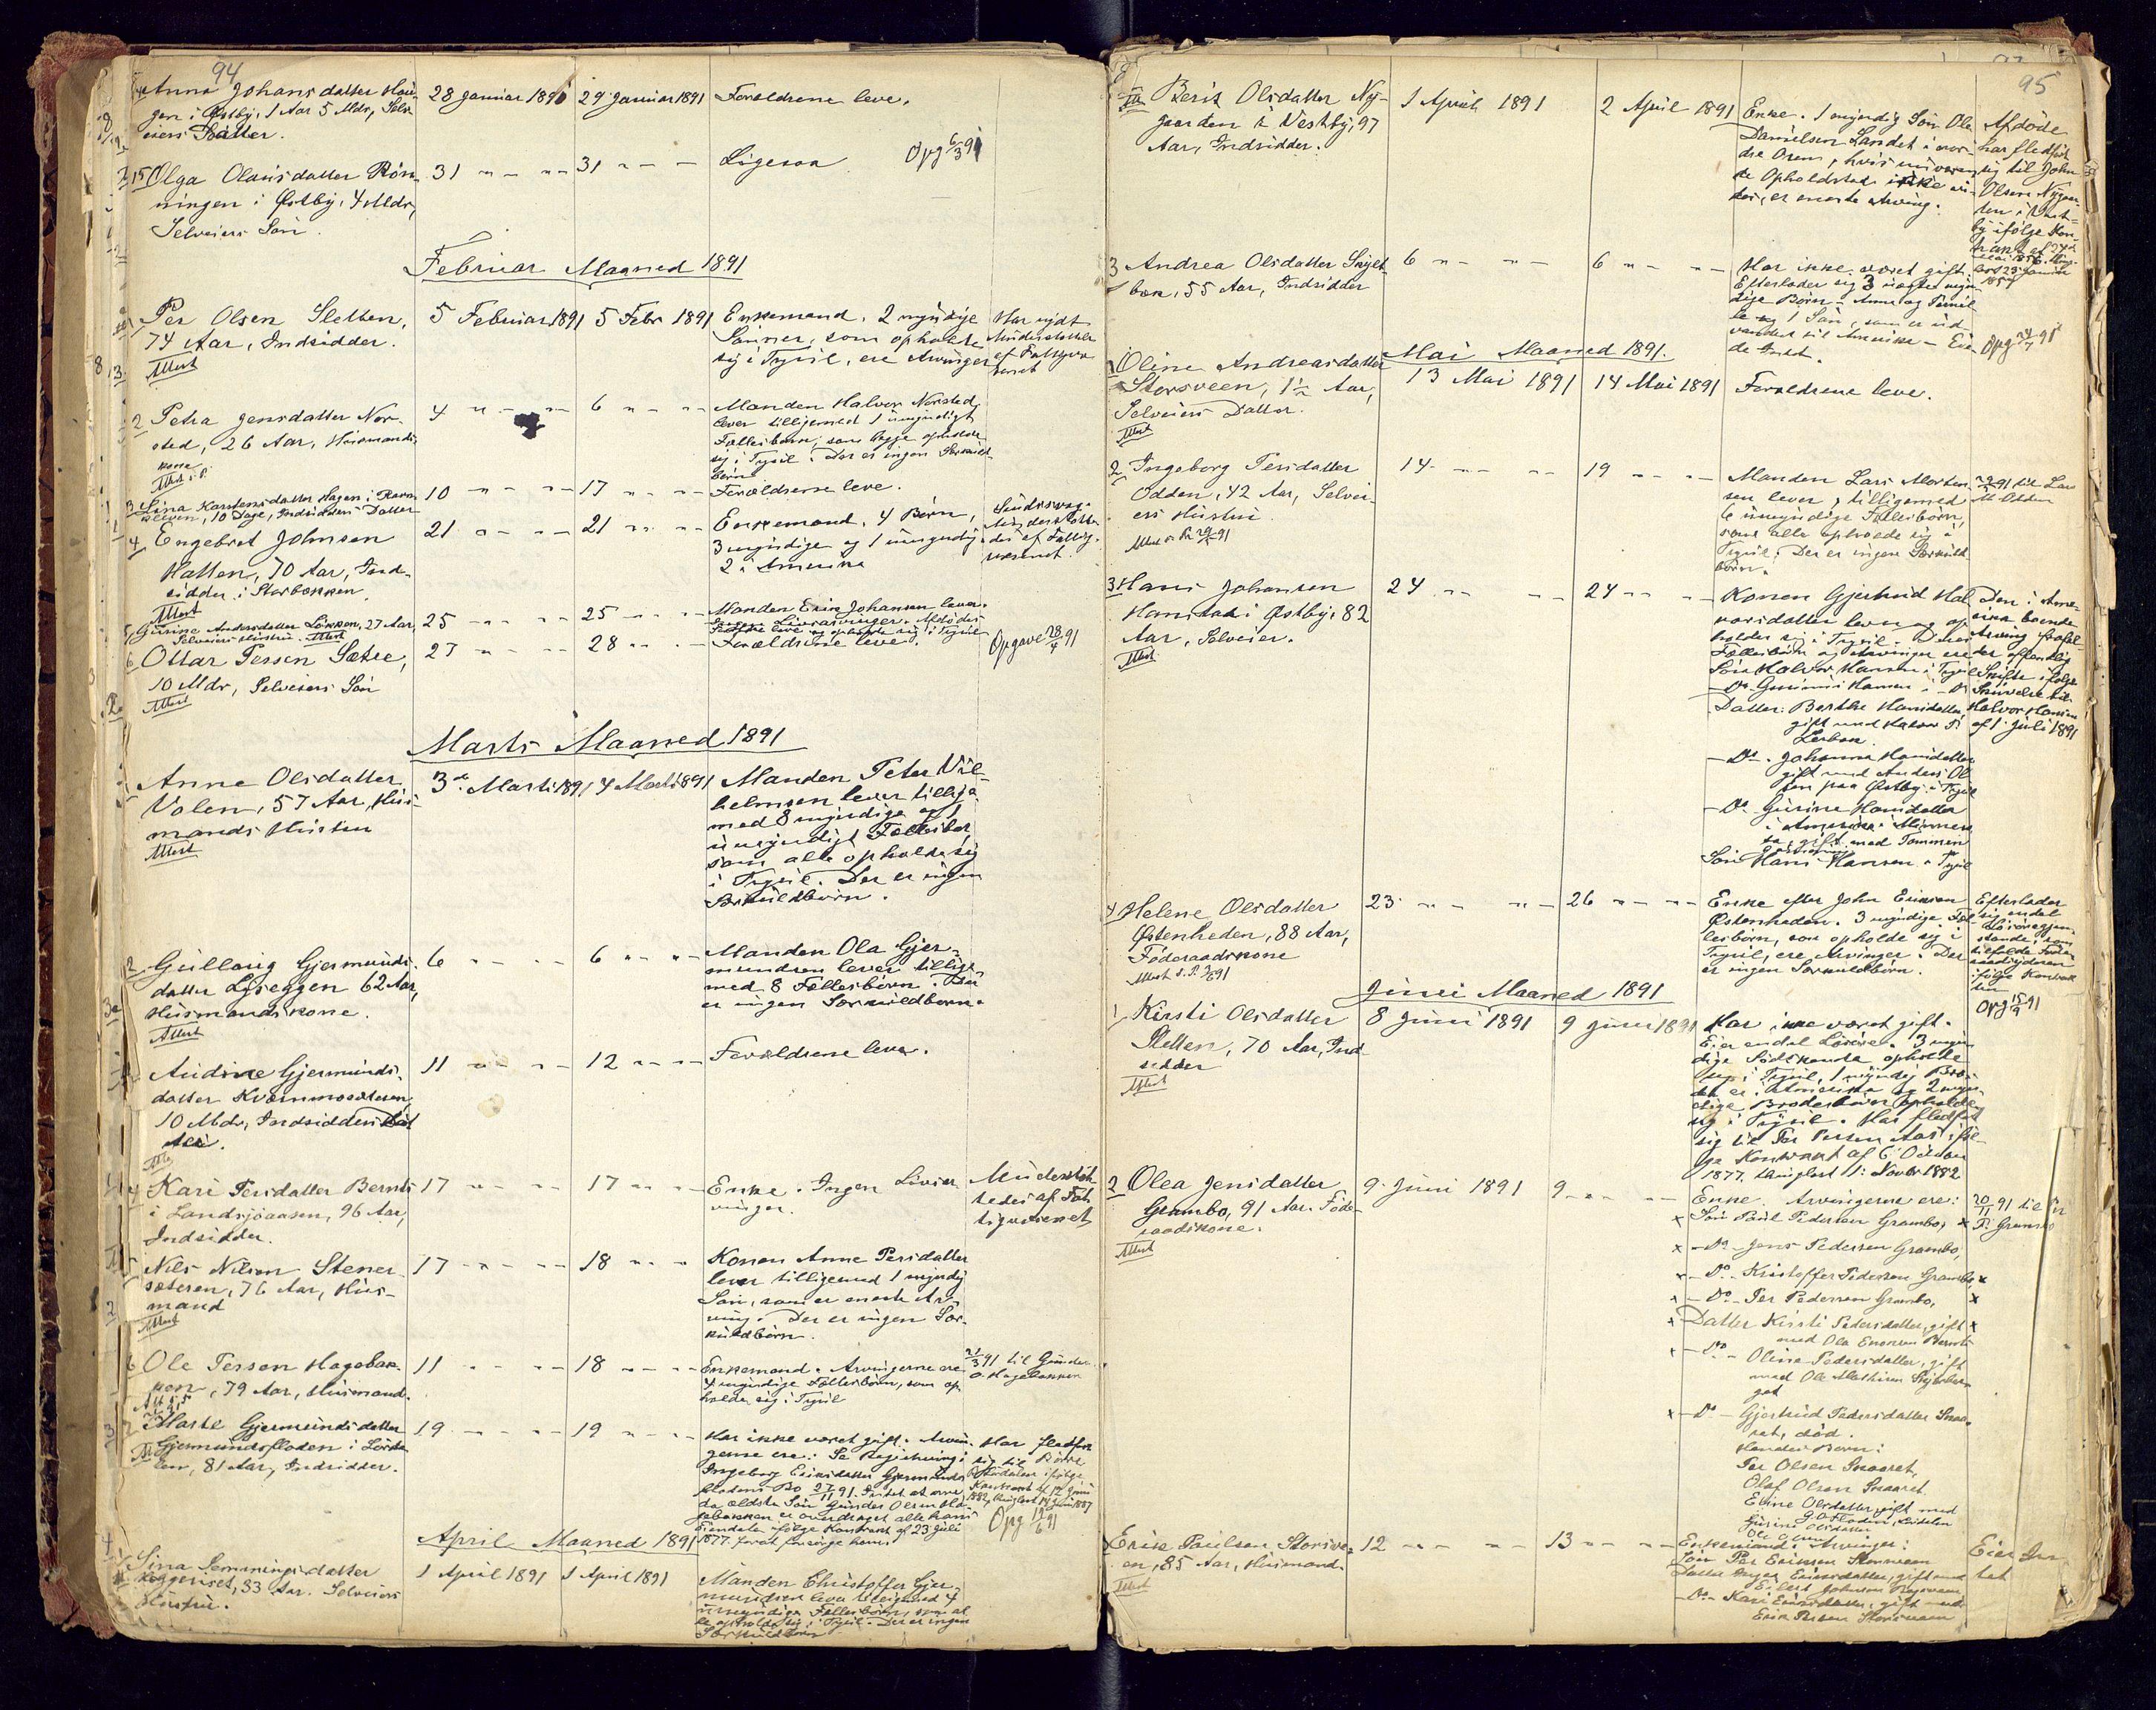 94
Anna Johansdatter Hau-
gen i Østby, 1 Aar 5 Mdr, Selv-
eiers Datter.
28 Januar 1891
29 Januar 1891
Forældrene leve.
15 Olga Olausdatter Rön-
ningen i Østby, 4 Mdr,
Selveiers Sön.
31 " — "
31 " — —
Ligesaa
Opg 6/3 91
Februar Maaned 1891
Per Olsen Sletten,
74 Aar, Indsidder.
Attest
5 Februar 1891
5 Febr 1891
Enkemand. 2 myndige
Sönner, som opholde
sig i Trysil, ere Arvinger
Har nydt
Understøttelse
af Fattigvæ-
senet
2 Petra Jensdatter Nor-
sted, 26 Aar, Husmands-
kone
4 " — "
6 " — "
Manden Halvor Norsted
lever tilligemed 1 umyndigt
Fællesbarn, som begge opholde
sig i Trysil. Der er ingen Særkuld-
börn
3 Lina Karstensdatter Hagen i Ravn-
kleven, 10 Dage, Indsidders Datter
10 " — "
17 " — "
Forældrene leve.
4 Engebret Johnsen
Hatten, 70 Aar, Ind-
sidder i Storbækken
Attest
21 " — "
21 " — "
Enkemand. 4 Börn,
3 myndige og 1 umyndig.
2 i Amerika
Sindssvag.
Understötte-
des af Fattig-
væsenet.
5 Gurine Andersdatter Lökken, 27 Aar,
Selveiers Hustru. Attest
25 " — "
25 " — "
Manden Erik Johansen lever.
Ingen Livsarvinger. Afdödes
Forældre leve og opholde sig i Trysil
6 Ottar Persen Sætre,
10 Mdr, Selveiers Sön
Attest
27 " — "
28 " — "
Forældrene leve.
Opgave 28/4 91
Marts Maaned 1891
Anne Olsdatter
Volen, 57 Aar, Hus-
mands Hustru
Attest
3de Marts 1891
4 Marts 1891
Manden Peter Vil-
helmsen lever tillige-
med 8 myndige og 1
umyndigt Fællesbar,
som alle opholde sig
i Trysil. Der er ingen
Særkuldbörn.
2 Gullaug Gjermunds-
datter Lyseggen 62 Aar,
Husmandskone.
Attest
6 " — "
6 " — "
Manden Ola Gjer-
mundsen lever tillige-
med 8 Fællesbörn. Der
er ingen Særkuldbörn.
Audine Gjermunds-
datter Kvernmosæteren,
10 Mdr, Indsidders Dat-
ter.
11 " — "
12 " — "
Forældrene leve.
4 Kari Persdatter Bernts
i Landsjöaasen, 96 Aar,
Indsidder.
17 " — "
17 " — "
Enke. Ingen Livsar-
vinger.
Understöt-
tedes af Fat-
tigvæsenet
5 Nils Nilsen Stener-
sæteren, 76 Aar, Hus-
mand
Attest
17 " — "
18 " — "
Konen Anne Persdatter
lever tilligemed 1 myndig
Sön, som er eneste Ar-
ving. Der er ingen Sær-
kuldbörn.
6 Ole Persen Hagebak-
ken, 79 Aar, Husmand.
11 " — "
18 " — "
Enkemand. Arvingerne ere
4 myndige Fællesbörn, som op-
holde sig i Trysil
21/3 91 til Gunder
O. Hagebakken
7 Marte Gjermundsdatter
Gjermundsfloden i Lörda-
len, 81 Aar, Indsidder.
19 " — "
19 " — "
Har ikke været gift. Arvin-
gerne ere: Se Registrering i
Ingeborg Eriksdatter Gjermunds-
flodens Bo 27/11 91. Intet at arve,
da ældste Sön Gunder Olsen Ha-
gebakken er overdraget alle hans
Eiendele ifölge Kontrakt af 23 Juli
1877 for at forsörge ham
Har fledfört
sig til
ifölge
Kontrakt af 12 Juni
1882, thinglæst 14 Juni 1887
Opg 19/6 91
April Maaned 1891
Lina Semmingsdatter
Skeggeriset, 33 Aar. Selveiers
Hustru.
1 April 1891
1 April 1891
Manden Christoffer Gjer-
mundsen lever tilligemed 4
umyndige Fællesbörn, som al-
le opholde sig i Trysil. Der er ingen
Særkuldbörn
95
Berit Olsdatter Ny-
gaarden i Vestby, 97
Aar, Indsidder.
1 April 1891
2 April 1891
Enke. 1 myndig Sön Ola
Danielsen Landet i nor-
dre Osen, hvis nuværen-
de Opholdsted ikke vi-
des, er eneste Arving.
Afdöde
har fledfört
sig til John
Olsen Nygaar-
den i Vest-
by ifölge Kon-
trakt af 24de
Mai 1856, thing-
læst 23 Januar
1857
3 Andrea Olsdatter Skjæt-
bæk, 55 Aar, Indsidder
6 " — "
6 " — "
Har ikke været gift.
Efterlader sig 3 uægte myn-
dige Börn – Anna og Pernil-
le og 1 Sön, som er ud-
vandret til Amerika – Eie-
de Intet.
Opg 24/7 91
Mai Maaned 1891.
1 Oline Andreasdatter
Storsveen, 1 1/2 Aar,
Selveiers Datter.
Attest
13 Mai 1891
14 Mai 1891
Forældrene leve.
2 Ingeborg Persdatter
Odden, 42 Aar, Selvei-
ers Hustru.
14 " — "
19 " — "
Manden Lars Morten-
sen lever, tilligemed
6 umyndige Fællesbörn,
som alle opholde sig i
Trysil. Der er ingen Særkuld-
börn.
91 til Lars
M. Odden
3 Hans Johansen
Hanstad i Østby, 82
Aar, Selveier.
Attest
24 " — "
24 " — "
Konen Gjertrud Hal-
vorsdatter lever og op-
holder sig i Trysil. Deres
Fællesbörn og Arvinger ere
Sön Halvor Hansen i Trysil
— Do Gunnar Hansen i — Do
Datter: Berthe Hansdatter,
gift med Halvor P.
Lerbæk
— Do. Johanna Hansdatter
gift med Anders Ol-
sen paa Østby i Trysil
— Do Gurine Hansdatter
i Amerika i Minneso-
ta, gift med Tommen
Sön Hans Hansen i Trysil
Den i Ame-
rika boende
Arving frafal-
der offentlig
Skifte ifölge
Skrivelse til
Halvor Hansen
af 1 Juli 1891
4 Helene Olsdatter
Østenheden, 88 Aar,
Föderaadskone
23 " — "
26 " — "
Enke efter John Eriksen
Østenheden. 3 myndige Fæl-
lesbörn, som opholde sig i
Trysil, ere Arvinger. Der
er ingen Særkuldbörn.
Efterlader
sig endel
Lösöregjen-
stande, som
tilfalde Föde-
raadsyderen
ifölge Kontrak-
ten
Opg 15/9 91
Juni Maaned 1891
1 Kirsti Olsdatter
Sletten, 70 Aar, Ind-
sidder
Attest
8 Juni 1891
9 Juni 1891
Har ikke været gift.
Eier endel Lösöre. 3 myn-
dige Södskende opholde
sig i Trysil, 1 myndig Bro-
der er i Amerika og 2 myn-
dige Broderbörn opholde
sig i Trysil. Har fledfört
sig til Per Persen Aas iföl-
ge Kontrakt af 6 October
1877, thinglæst 1 Novbr 1882
2 Olea Jensdatter
Grambo, 91 Aar. Föde-
raadskone.
Attest
9 Juni 1891
9 " — "
Enke. Arvingerne ere:
x Sön Paul Pedersen Grambo, x
x — Do — Jens Pedersen Grambo,
x — Do — Kristoffer Pedersen Grambo x
x — Do — Per Pedersen Grambo, x
x Datter Kirsti Pedersdatter, gift x
med Ola Enersen
x — Do — Oline Pedersdatter, gift
med Ole Mathisen Skjærber-
get
x — Do — Gjertrud Pedersdatter Snaa-
ret, död.
Hendes Börn:
Per Olsen Snaaret,
Olaf Olsen Snaaret
Eline Olsdatter, gift med
20/11 91 til
P. Grambo
Erik Paulsen Storsve-
en, 85 Aar, Husmand.
Attest
12 " — "
13 " — "
Enkemand. Arvinger:
Sön Per Eriksen Storsveen
Datter Inger Eriksdatter, gift med
Eilert Johnsen
— Do — Kari Eriksdatter, gift med
Erik Persen Storsveen
Eier In-
tet